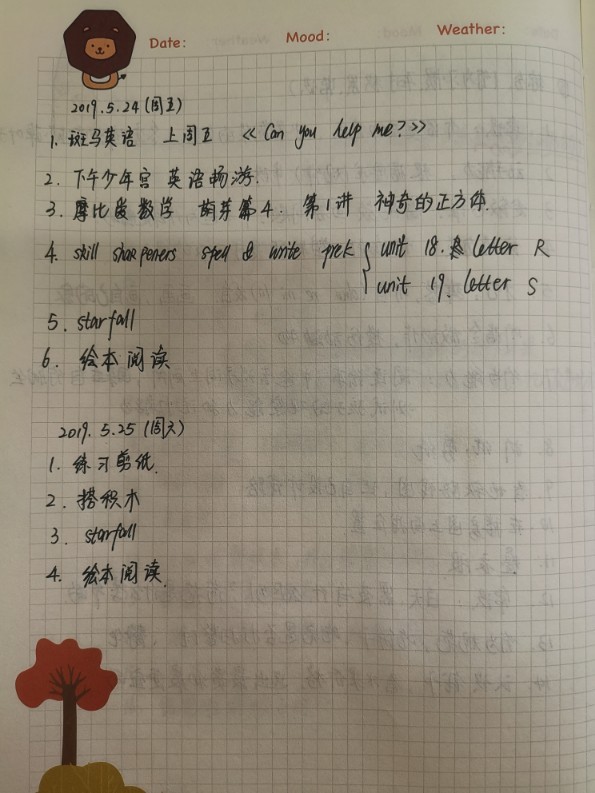 Date: Mood: Weather:
2019.5.24(周五)
1. 斑马英语 上周五 《Can you help me?》
2. 下午少年宫 英语畅游.
3. 摩比爱数学 萌芽篇4. 第1讲 神奇的正方体.
4. skill sharpeners spell & write prek { unit 18. letter R
unit 19. letter S
5. starfall
6. 绘本阅读
2019.5.25(周六)
1. 练习剪纸.
2. 搭积木
3. starfall
4. 绘本阅读.